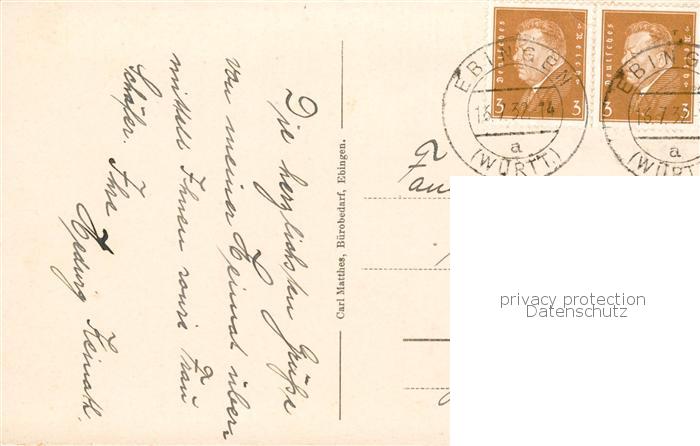 Die herzlichsten Grüße
von meiner Heimat über-
mittelt Ihnen sowie Frau
Schäfer. Ihre
Hedwig
Carl Matthes, Bürobedarf, Ebingen.
Deutsches Reich
3 3
Deutsches Reich
3 3
EBINGEN
a
(WÜRTT.)
EBINGEN
a
(WÜRTT.)
privacy protection
Datenschutz